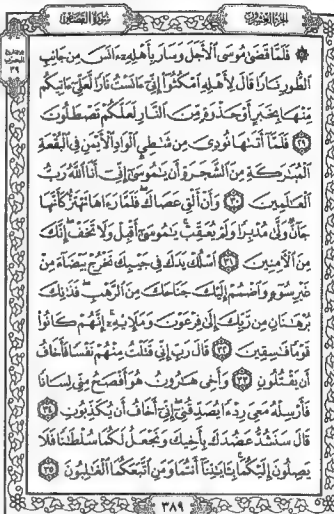 الجزء العشرون سورة القصص
۞ فَلَمَّا قَضَىٰ مُوسَى ٱلْأَجَلَ وَسَارَ بِأَهْلِهِۦٓ ءَانَسَ مِن جَانِبِ
ٱلطُّورِ نَارًا قَالَ لِأَهْلِهِ ٱمْكُثُوٓا۟ إِنِّىٓ ءَانَسْتُ نَارًا لَّعَلِّىٓ ءَاتِيكُم
مِّنْهَا بِخَبَرٍ أَوْ جَذْوَةٍ مِّنَ ٱلنَّارِ لَعَلَّكُمْ تَصْطَلُونَ
٢٩ فَلَمَّآ أَتَىٰهَا نُودِىَ مِن شَٰطِئِ ٱلْوَادِ ٱلْأَيْمَنِ فِى ٱلْبُقْعَةِ
ٱلْمُبَٰرَكَةِ مِنَ ٱلشَّجَرَةِ أَن يَٰمُوسَىٰٓ إِنِّىٓ أَنَا ٱللَّهُ رَبُّ
ٱلْعَٰلَمِينَ ٣٠ وَأَنْ أَلْقِ عَصَاكَ ۖ فَلَمَّا رَءَاهَا تَهْتَزُّ كَأَنَّهَا
جَآنٌّ وَلَّىٰ مُدْبِرًا وَلَمْ يُعَقِّبْ ۚ يَٰمُوسَىٰٓ أَقْبِلْ وَلَا تَخَفْ ۖ إِنَّكَ
مِنَ ٱلْءَامِنِينَ ٣١ ٱسْلُكْ يَدَكَ فِى جَيْبِكَ تَخْرُجْ بَيْضَآءَ مِنْ
غَيْرِ سُوٓءٍ وَٱضْمُمْ إِلَيْكَ جَنَاحَكَ مِنَ ٱلرَّهْبِ ۖ فَذَٰنِكَ
بُرْهَٰنَانِ مِن رَّبِّكَ إِلَىٰ فِرْعَوْنَ وَمَلَإِي۟هِۦٓ ۚ إِنَّهُمْ كَانُوا۟
قَوْمًا فَٰسِقِينَ ٣٢ قَالَ رَبِّ إِنِّى قَتَلْتُ مِنْهُمْ نَفْسًا فَأَخَافُ
أَن يَقْتُلُونِ ٣٣ وَأَخِى هَٰرُونُ هُوَ أَفْصَحُ مِنِّى لِسَانًا
فَأَرْسِلْهُ مَعِىَ رِدْءًا يُصَدِّقُنِىٓ ۖ إِنِّىٓ أَخَافُ أَن يُكَذِّبُونِ ٣٤
قَالَ سَنَشُدُّ عَضُدَكَ بِأَخِيكَ وَنَجْعَلُ لَكُمَا سُلْطَٰنًا فَلَا
يَصِلُونَ إِلَيْكُمَا ۚ بِـَٔايَٰتِنَآ أَنتُمَا وَمَنِ ٱتَّبَعَكُمَا ٱلْغَٰلِبُونَ ٣٥
٣٨٩